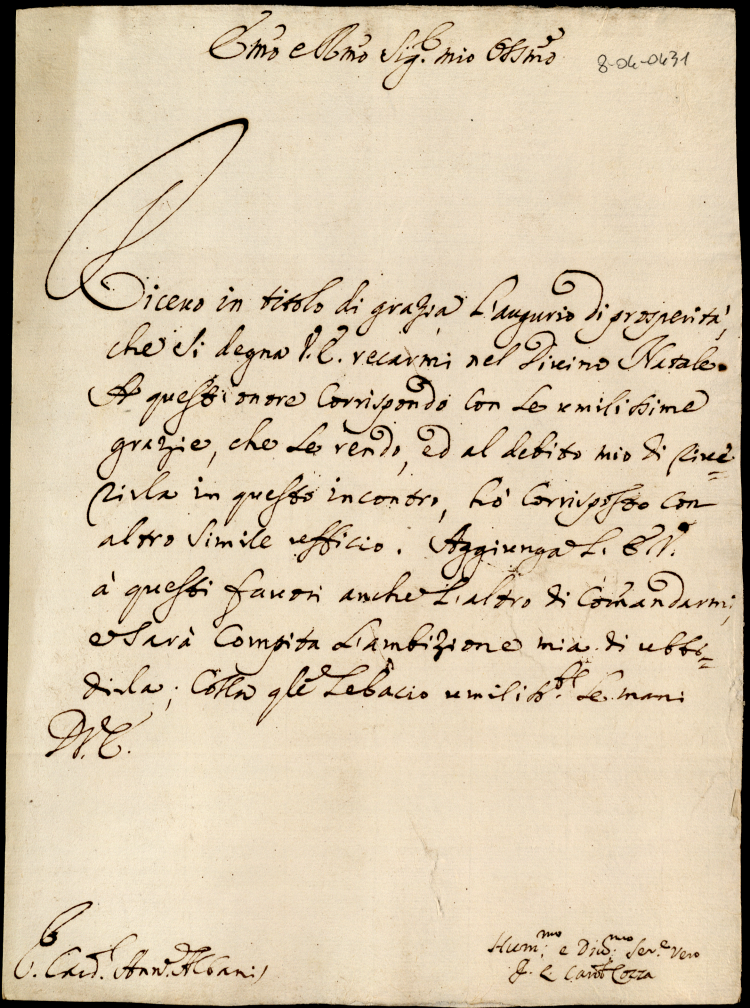 Emo e Rmo Sig.r mio Ossmo
8-04-0431
Ricevo in titolo di grazia l'augurio di prosperità,
che si degna V. E. recarmi nel Divino Natale.
A questo onore corrispondo con le umilissime
grazie, che le rendo, ed al debito mio di rive=
rirla in questo incontro, hò corrisposto con
altro simile ufficio. Aggiunga L. E. V.
à questi favori anche l'altro di comandarmi,
e sarà compita l'ambizione mia di ubbi=
dirla; colla qle le bacio umiliss.te le mani
D. V. E.
S. Card. Ann. Albani
Hum.mo e Div.mo Ser.e vero
F. L. Card. Cozza